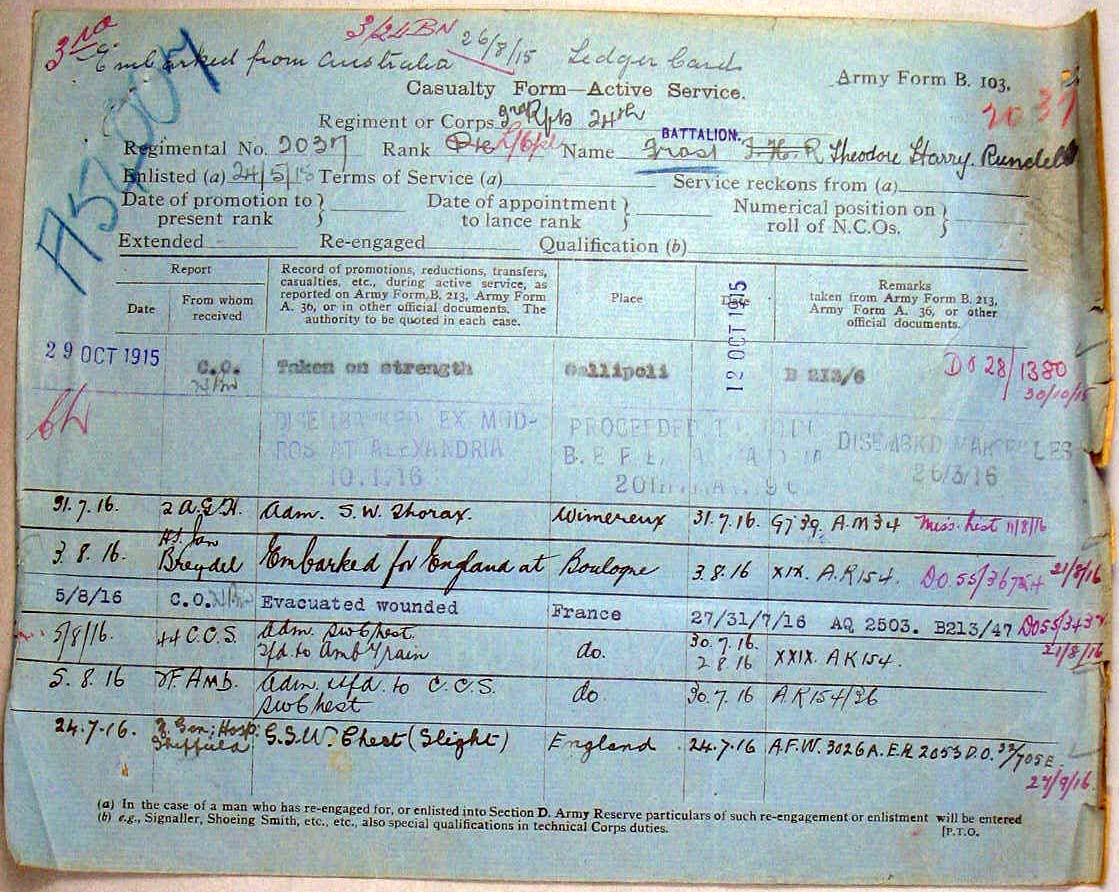 3rd 3/24 BN 26/8/15
Embarked from Australia Ledger Card
Army Form B. 103.
Casualty Form—Active Service.
2037
Regiment or Corps 3rd Rfts 24th
BATTALION.
Regimental No. 2037 Rank Pte L/Cpl Name Frost T. H. R Theodore Harry Rundell
Enlisted (a) 24/5/15 Terms of Service (a) Service reckons from (a)
Date of promotion to present rank } Date of appointment to lance rank } Numerical position on roll of N.C.Os. }
Extended Re-engaged Qualification (b)
Report
Date
From whom received
Record of promotions, reductions, transfers, casualties, etc., during active service, as reported on Army Form B. 213, Army Form A. 36, or in other official documents. The authority to be quoted in each case.
Place
Date
Remarks
taken from Army Form B. 213, Army Form A. 36, or other official documents.
29 OCT 1915 C.O. Taken on strength Gallipoli 12 OCT 1915 B 213/6 DO 28/1380
30/10/15
DISEMBARKED EX MUDROS AT ALEXANDRIA 10.1.16
PROCEEDED TO JOIN B.E.F.
DISEMBKD MARSEILLES 26/3/16
31.7.16. 2 A.G.H. Adm. S.W. Thorax. Wimereux 31.7.16. A.M34 Miss. list 11/8/16
3.8.16. Jan Breydel Embarked for England at Boulogne 3.8.16 XIX. AR154. 21/8/16
5/8/16 C.O. Evacuated wounded France 27/31/7/16 AQ 2503. B213/47
5/8/16. 44 C.C.S. Adm. SW Chest. Tfd to Amb Train do. 30.7.16. 2.8.16 XXIX. AR154. 21/8/16
5.8.16 F. AMB. Adm. & tfd. to C.C.S. SW Chest do 30.7.16 AR154/36
24.7.16. Gen; Hosp: Sheffield G.S.W. Chest (Slight) England 24.7.16 A.F.W. 3026A. ER 2053 D.O.
27/9/16.
(a) In the case of a man who has re-engaged for, or enlisted into Section D. Army Reserve particulars of such re-engagement or enlistment will be entered
(b) e.g., Signaller, Shoeing Smith, etc., etc., also special qualifications in technical Corps duties. [P.T.O.